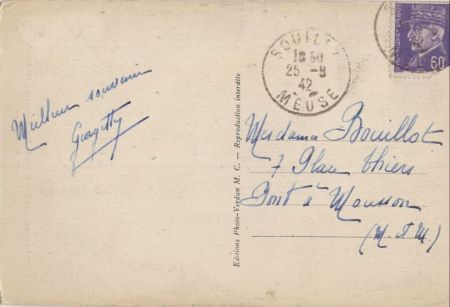 SOUILLY
18 50
25 -8
42
MEUSE
60c
Meilleur souvenir
Georgetty
Editions Photo-Verdun M. C. — Reproduction interdite
Madame Bouillot
7 Place Thiers
Pont à Mousson
(M. et M.)